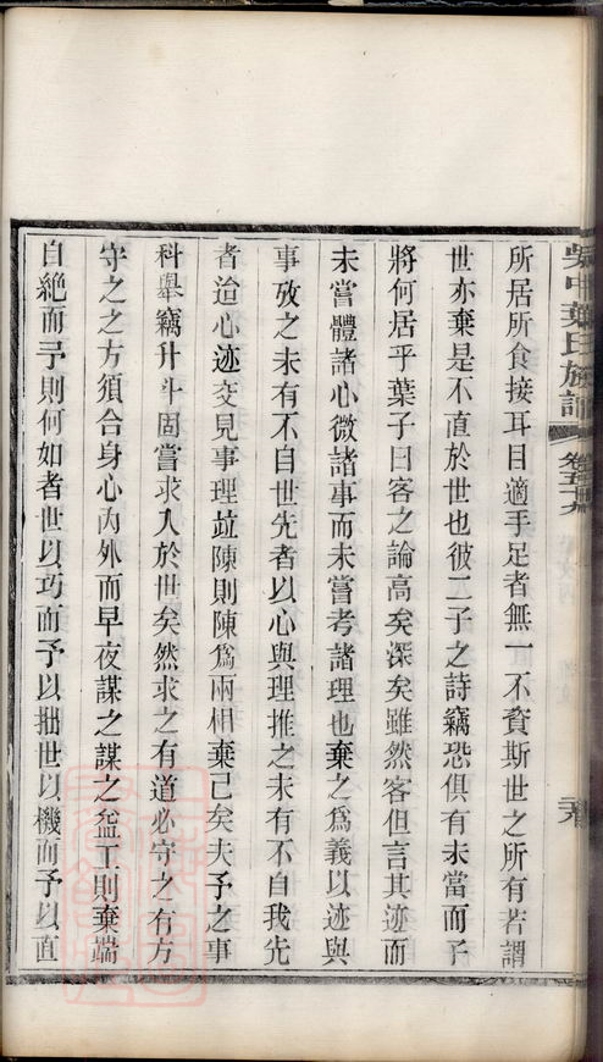 吳中葉氏族譜
卷五十六
所居所食接耳目適手足者無一不資斯世之所有若謂
世亦棄是不直於世也彼二子之詩竊恐俱有未當而子
將何居乎葉子曰客之論高矣深矣雖然客但言其迹而
未嘗體諸心微諸事而未嘗考諸理也棄之為義以迹與
事攷之未有不自世先者以心與理推之未有不自我先
者迨心迹交見事理竝陳則陳為兩相棄已矣夫予之事
科舉竊升斗固嘗求入於世矣然求之有道必守之有方
守之之方須合身心內外而早夜謀之謀之益工則棄端
自絕而予則何如者世以巧而予以拙世以機而予以直